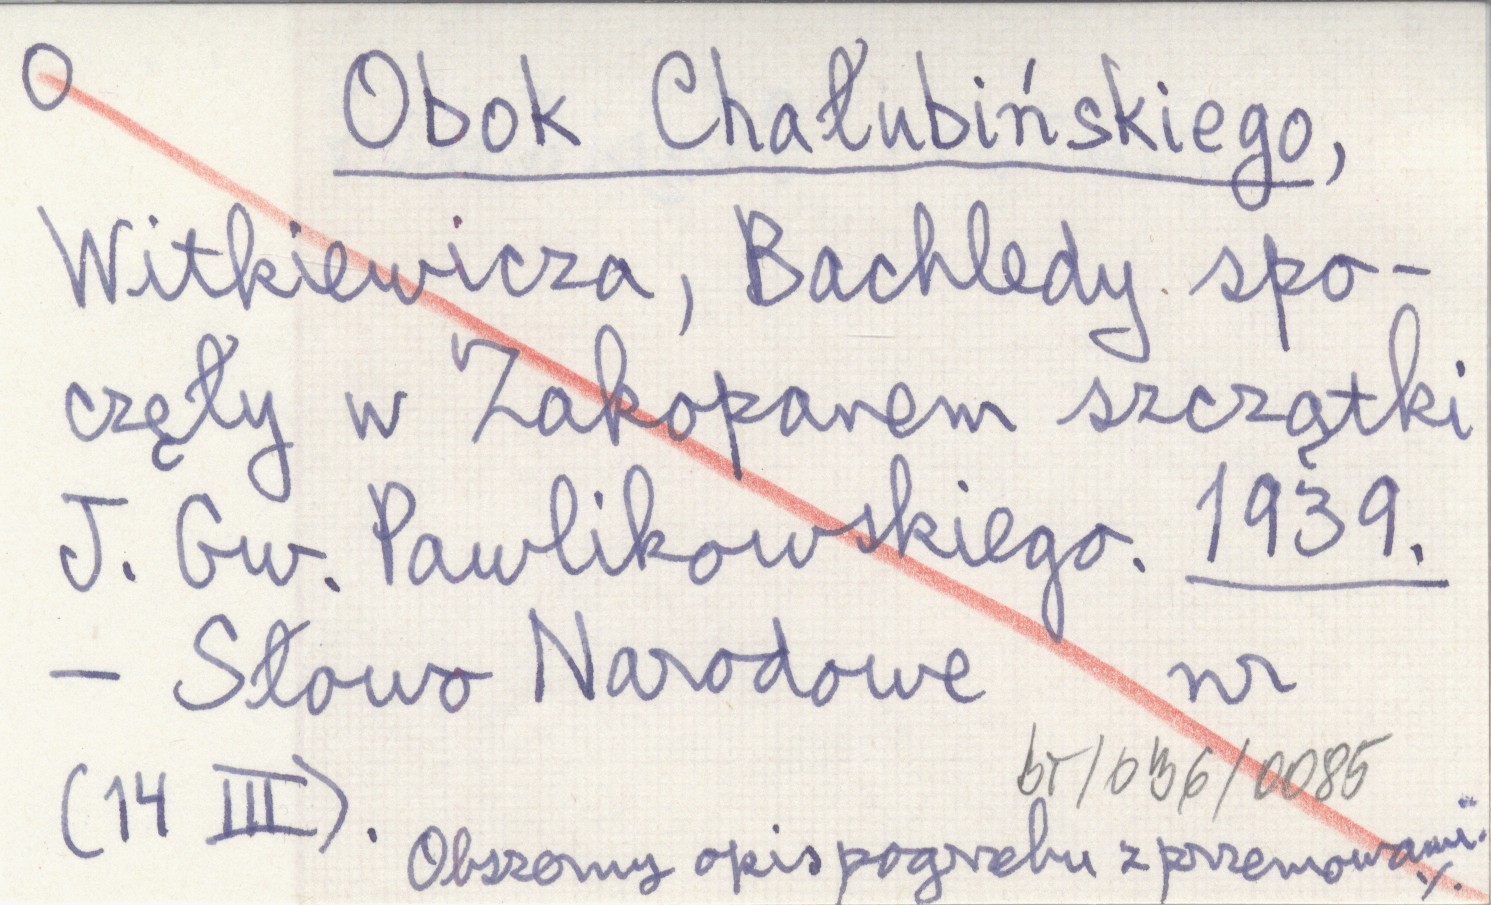 O Obok Chałubińskiego,
Witkiewicza, Bachledy spo-
częły w Zakopanem szczątki
J. Gw. Pawlikowskiego. 1939.
— Słowo Narodowe nr
(14 III).
br/036/0085
Obszerny opis pogrzebu z przemowami.
./.